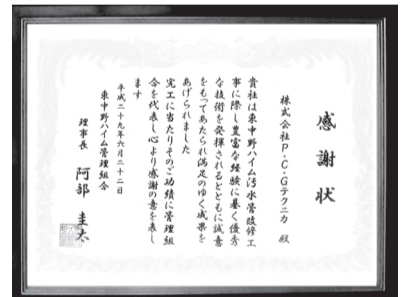 感謝状
株式会社P・C・Gテクニカ 殿
貴社は東中野ハイム汚水管改修工
事に際し豊富な経験に基く優秀
な技術を発揮されるとともに誠意
をもってあたられ満足のゆく成果を
あげられました
完工に当たりそのご功績に管理組
合を代表し心より感謝の意を表し
ます
平成二十九年六月二十二日
東中野ハイム管理組合
理事長 阿部 圭太